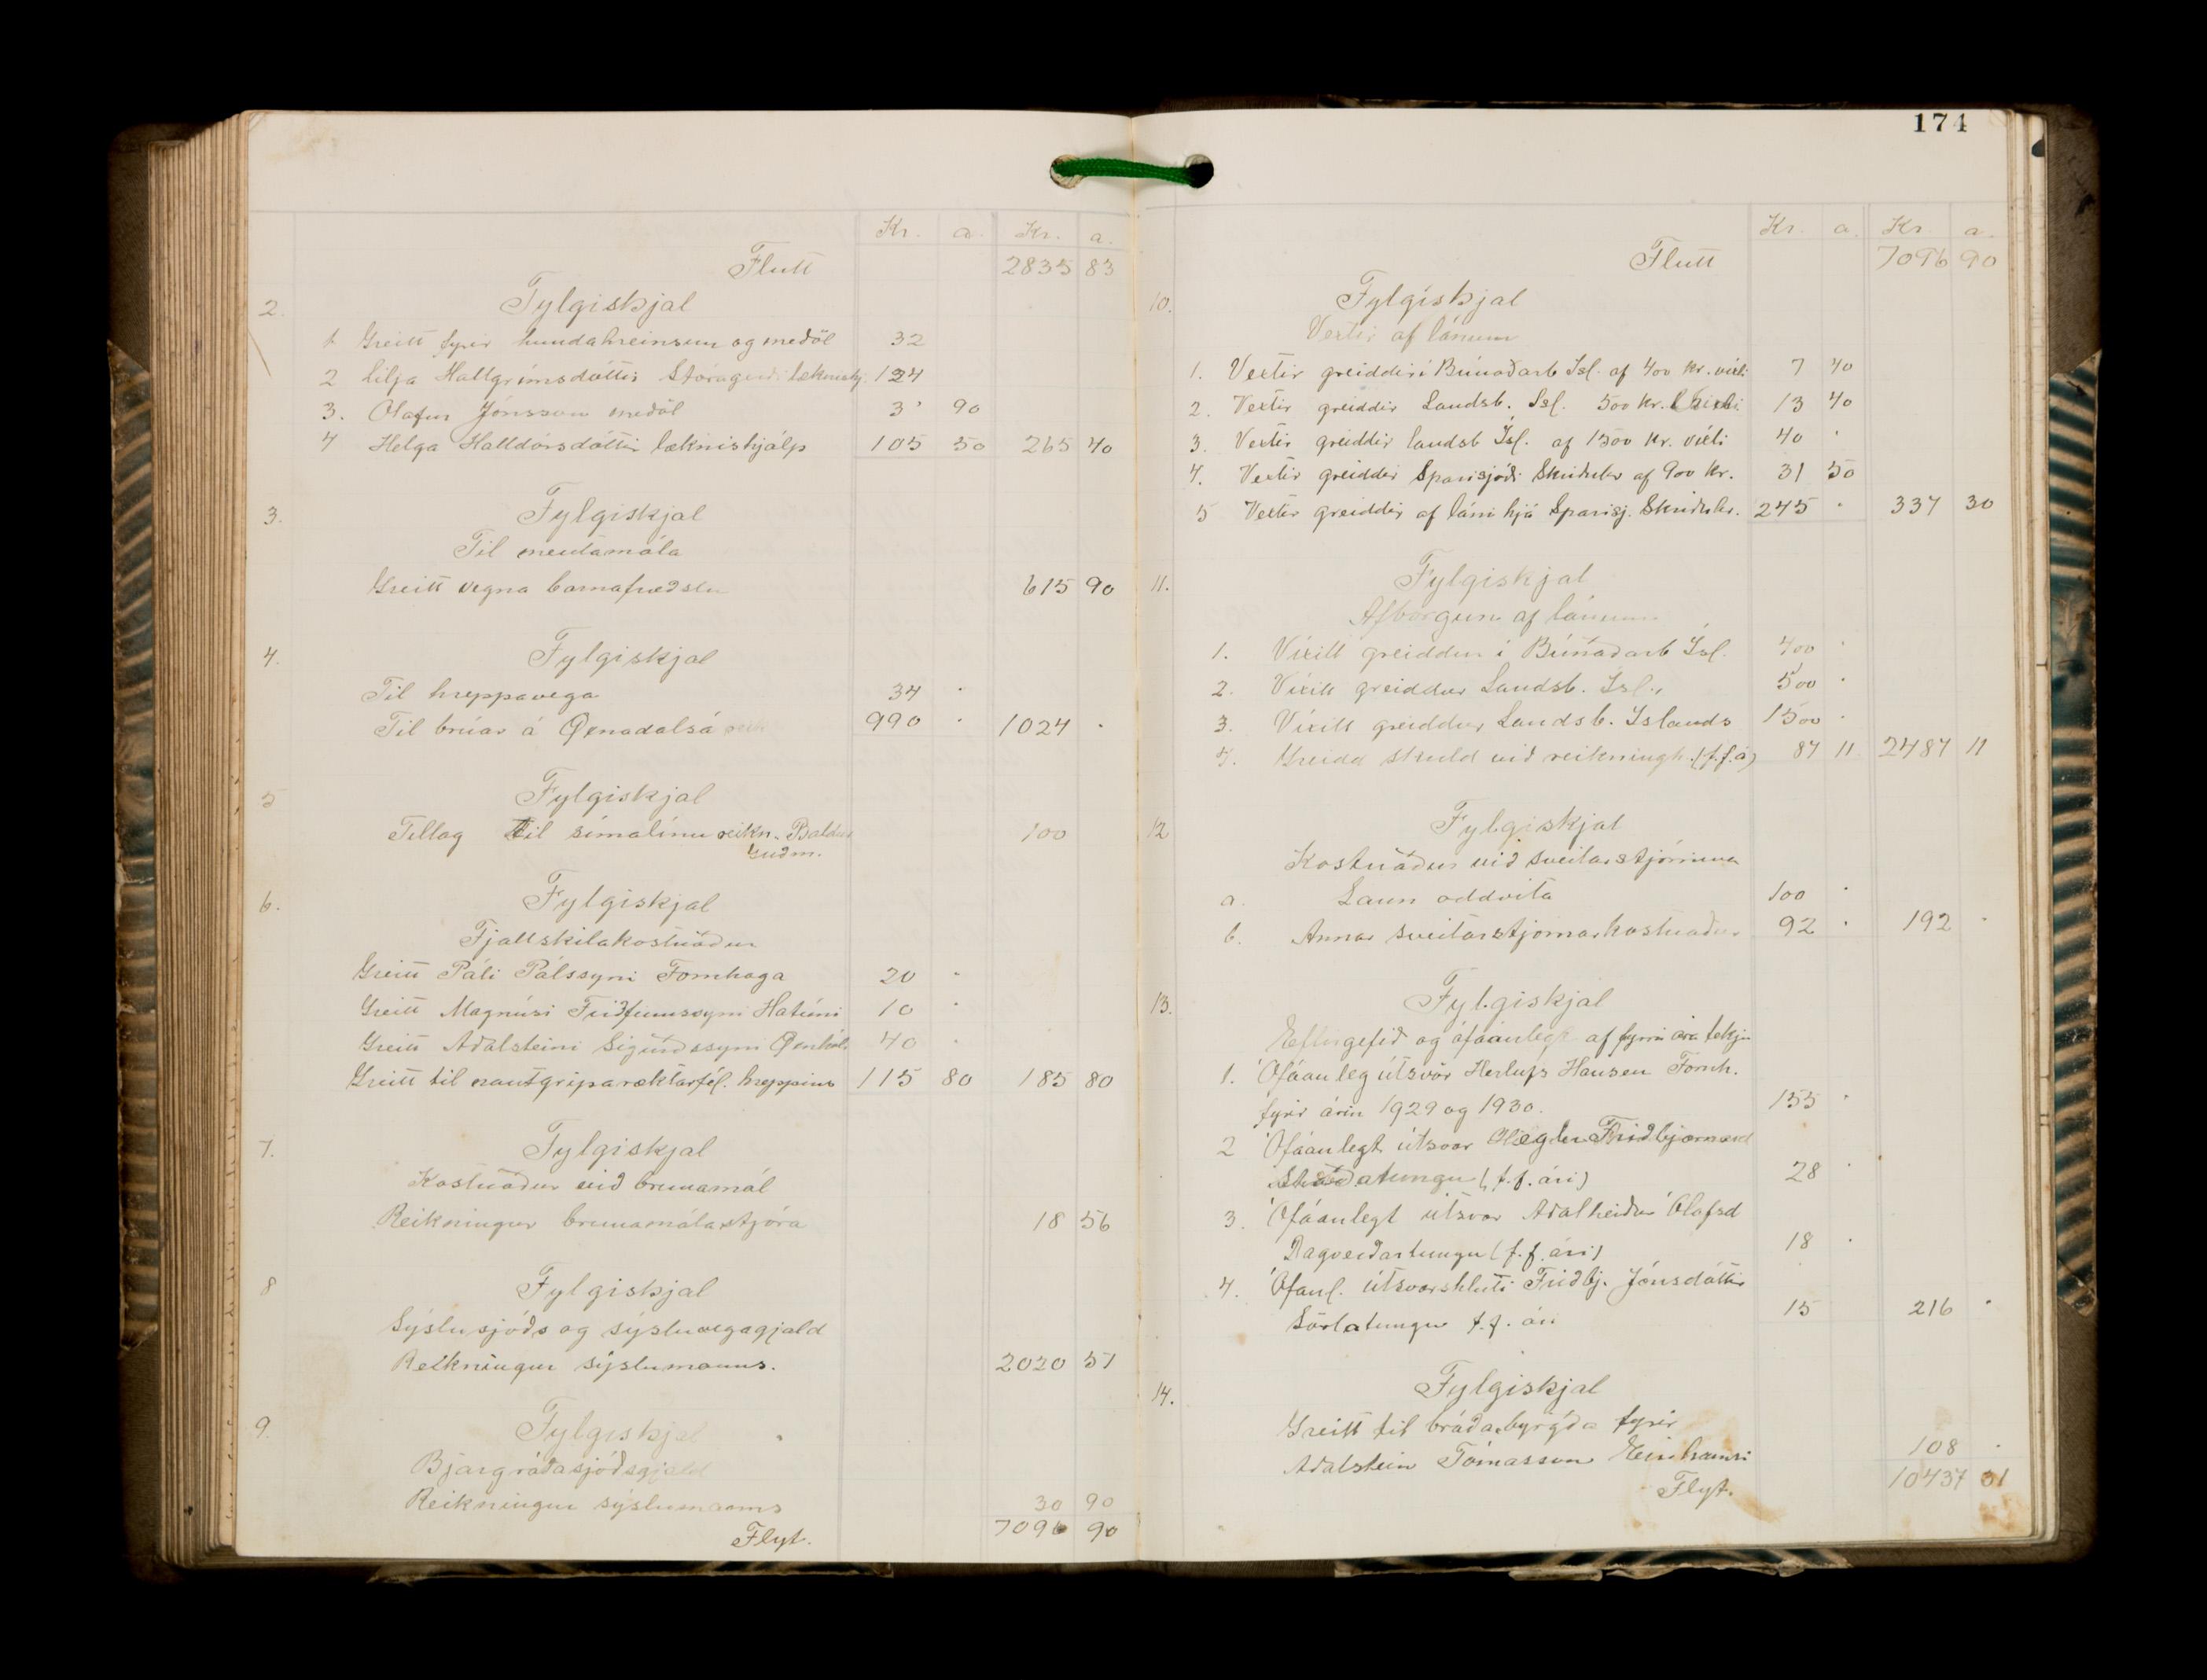 Kr. a. Kr. a.
Flutt 2835 83
2. Fylgiskjal
1 Greitt fyrir hundahreinsun og meðöl 32
2 Lilja Hallgrímsdóttir Stóragerði læknishj. 124
3. Ólafur Jónsson meðöl 3 90
4 Helga Halldórsdóttir læknishjálp 105 50 265 40
3. Fylgiskjal
Til mentamála
Greitt vegna barnafræðslu 615 90
4. Fylgiskjal
Til hreppavega 34 -
Til brúar á Öxnadalsá 990 - 1024 -
5 Fylgiskjal
Tillag til símalínu reikn. Baldur
Guðm. 100
6. Fylgiskjal
Fjallskilakostnaður
Greitt Páli Pálssyni Fornhaga 20 -
Greitt Magnúsi Friðfinnssyni Hátúni 10 -
Greitt Aðalsteini Sigurðssyni Öxnhóli 40 -
Greitt til nautgriparæktarfél. hreppins 115 80 185 80
7. Fylgiskjal
Kostnaður við brunamál
Reikningur brunamálastjóra 18 56
8 Fylgiskjal
Sýslusjóðs og sýsluvegagjald
Reikningur sýslumanns. 2020 51
9. Fylgiskjal
Bjargráðasjóðsgjald
Reikningur sýslumanns 30 90
Flyt. 7096 90
174
Kr. a. Kr a.
Flutt 7096 90
10. Fylgiskjal
Vextir af lánum
1. Vextir greiddir í Búnaðarb Ísl. af 400 kr. víxli 7 40
2. Vextir greiddir Landsb. Ísl. 500 kr. víxli 13 40
3. Vextir greiddir landsb Ísl. af 1500 kr. víxli 40 -
4. Vextir greiddir Sparisjóði Skriðuhr af 900 kr. 31 50
5 Vextir greiddir af láni hjá Sparisj. Skriðuhr. 245 - 337 30
11. Fylgiskjal
Afborgun af lánum
1. Víxill greiddur í Búnaðarb Ísl. 400 -
2. Víxill greiddur Landsb. Ísl., 500 -
3. Víxill greiddur Landsb. Íslands 1500 -
4. Greidd skuld við reikningh. (f.f.á) 87 11 2487 11
12 Fylgiskjal
Kostnaður við sveitarstjórnina
a. Laun oddvita 100 -
b. Annar sveitarstjórnarkostnaður 92 - 192 -
13. Fylgiskjal
Eftirgefið og ófáanlegt af fyrri ára tekju
1. Ófáanleg útsvör Herlufs Hansen Fornh.
fyrir árin 1929 og 1930. 155 -
2 Ófáanlegt útsvar Friðbjarnard
Skriðatungu (f.f. ári) 28 -
3. Ófáanlegt útsvar Aðalheiður Ólafsd
Dagverðartungu (f.f. ári) 18 -
4. Ófánl. útsvarshluti Friðbj. Jónsdóttir
Sörlatungu f.f. ári 15 216 -
14. Fylgiskjal
Greitt til bráðabyrgða fyrir
Aðalstein Tómasson Einhamri 108 -
Flyt. 10437 31